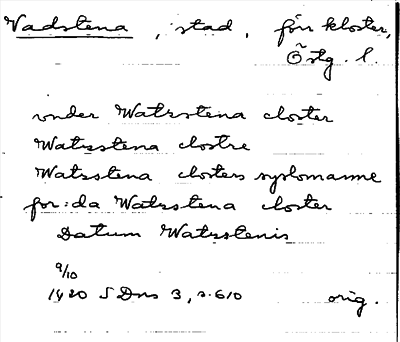 Vadstena, stad, förr kloster,
Östg. l.
vnder Watzstena closter
Watzstena clostre
Watzstena closters syslomanne
for:da Watzstena closter
Datum Watzstenis
9/10
1420 SDns 3, s. 610 orig.